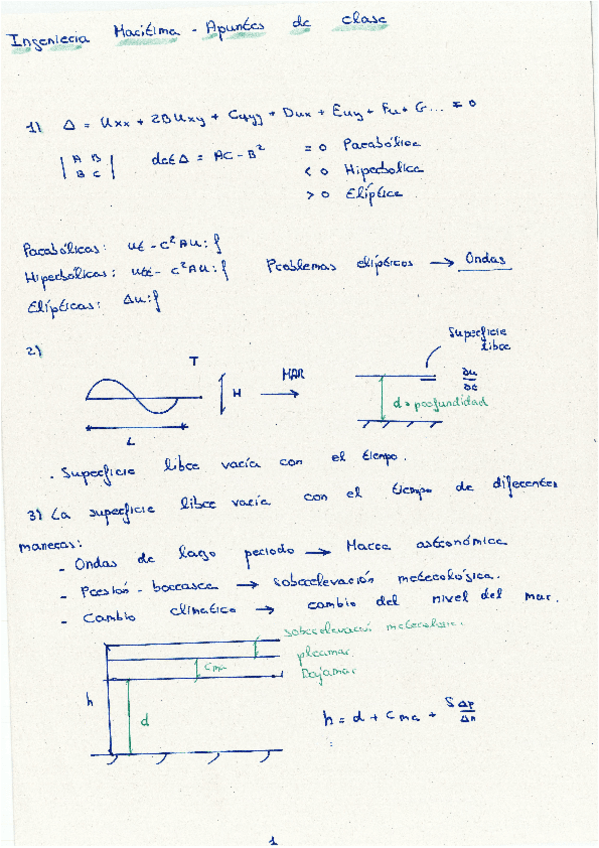 Ingeniería Marítima - Apuntes de clase
1) Δ = Uxx + 2BUxy + Cuyy + Dux + Euy + Fu + G... = 0
| A B
B C | det Δ = AC - B² = 0 Parabólica
< 0 Hiperbólica
> 0 Elíptica
Parabólicas: ut - c²Δu: f
Hiperbólicas: utt - c²Δu: f Problemas elípticos → Ondas
Elípticas: Δu: f
2)
T
H
MAR
L
Superficie
libre
∂u
∂t
d = profundidad
. Superficie libre varía con el tiempo.
3) La superficie libre varía con el tiempo de diferentes
maneras:
- Ondas de largo periodo → Marea astronómica
- Presión - borrasca → sobreelevación meteorológica.
- Cambio climático → cambio del nivel del mar.
sobreelevación meteorolo.
pleamar
Cma
Bajamar
h
d
h = d + Cma + S Δp
Δn
1